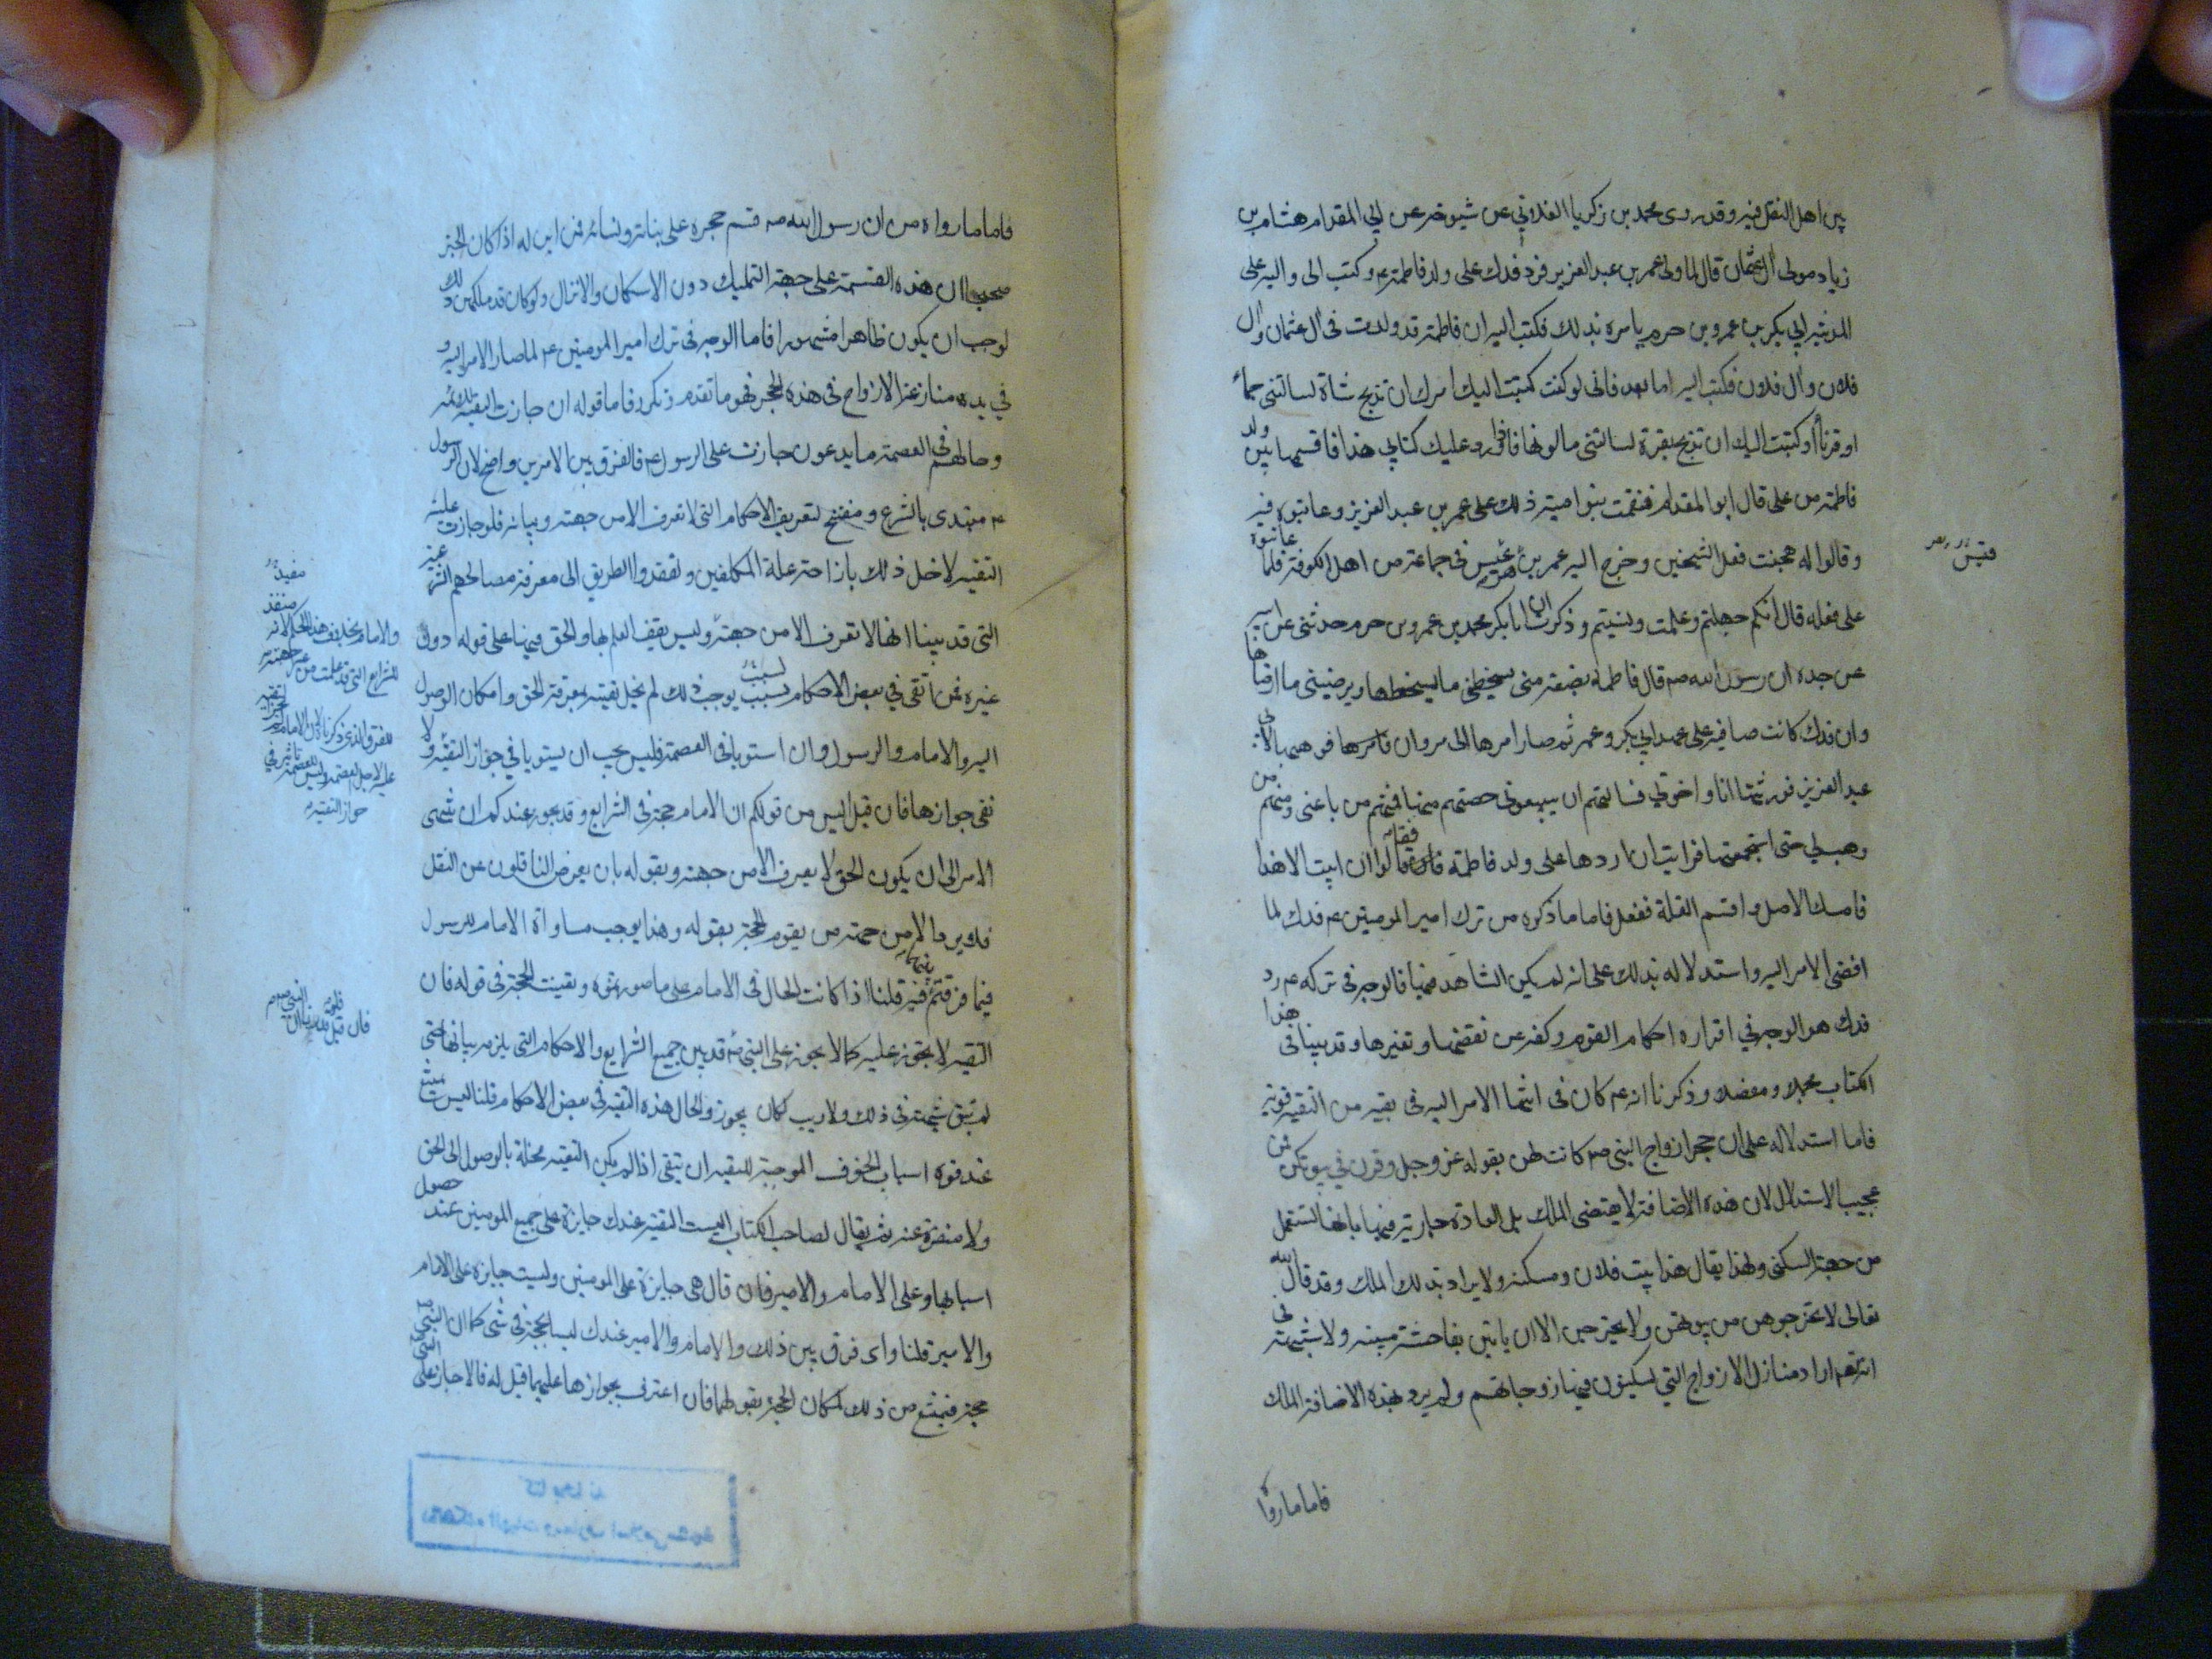 بين اهل النقل فيه وقد روى محمد بن زكريا الغلابي عن شيوخه عن ابي المقدام هشام بن
زياد مولى آل عثمان قال لما ولى عمر بن عبد العزيز فرد فدك على ولد فاطمة ع وكتب الى واليه على
المدينه ابي بكر بن عمرو بن حزم يامره بذلك فكتب اليه ان فاطمة قد ولدت في آل عثمان وآل
فلان وآل فلان فكتب اليه اما بعد فاني لو كنت كتبت اليك امرك ان تذبح شاة لسالتني جماء
او قرناء او كتبت اليك ان تذبح بقرة لسالتني ما لونها فاذا ورد عليك كتابي هذا فاقسمها بين ولد
فاطمة من على قال ابو المقدام فنقمت بنوا امية ذلك على عمر بن عبد العزيز وعاتبوه فيه
وقالوا له هجنت فعل الشيخين وخرج اليه عمر بن عبيس في جماعة من اهل الكوفة فلما عاتبوه
على فعله قال انكم جهلتم وعلمت ونسيتم وذكرت ان ابا بكر محمد بن عمرو بن حزم حدثني عن ابيه
عن جده ان رسول الله صم قال فاطمة بضعة منى يسخطني ما يسخطها ويرضيني ما ارضاها
وان فدك كانت صافية على عهد ابي بكر وعمر ثم صار امرها الى مروان فوهبها لابي
عبد العزيز فورثتها انا واخوتي فسالتهم ان يبيعوني حصتهم منها فمنهم من باعني ومنهم من
وهب لي حتى استجمعتها فرايت ان اردها على ولد فاطمة فقالوا ان ابيت الا هذا
فامسك الاصل واقسم الغلة ففعل فاما ما ذكره من ترك امير المومنين ع فدك لما
افضى الامر اليه واستدلاله بذلك على انه لم يكن الشاهد فيها فالوجه في تركه ع رد
فدك هو الوجه في اقراره احكام القوم وكفه عن نقضها وتغيرها وقد بينا في هذا
الكتاب مجملا ومفصلا وذكرنا انه ع كان في انتهاء الامر اليه في بقيه من التقيه قويه
فاما استدلاله على ان حجر ازواج النبى صم كانت لهن بقوله عز وجل وقرن في بيوتكن فمن
عجيب الاستدلال لان هذه الاضافة لا يقتضى الملك بل العادة جارية فيها بانها تستعمل
من جهة السكنى ولهذا يقال هذا بيت فلان ومسكنه ولا يراد بذلك الملك وقد قال الله
تعالى لا تخرجوهن من بيوتهن ولا يخرجن الا ان ياتين بفاحشة مبينه ولا شبهة في
انه تعم اراد منازل الازواج التي يسكنون فيها زوجاتهم ولم يرد بهذه الاضافة الملك
فاما ما رواه
فاما ما رواه من ان رسول الله صم قسم حجره على بناته ونسائه فمن اين له اذا كان الخبر
صحيحا ان هذه القسمة على جهة التمليك دون الاسكان والانزال ولو كان قد ملكهن ذلك
لوجب ان يكون ظاهرا مشهورا فاما الوجه في ترك امير المومنين ع لما صار الامر اليه و
في يده منازعة الازواج في هذه الحجر فهو ما تقدم ذكره فاما قوله ان جازت التقيه للائمه
وحالهم في العصمة ما يدعون جازت على الرسول ع فالفرق بين الامرين واضح لان الرسول
ع مبتدى بالشرع ومفتتح لتعريف الاحكام التى لا تعرف الا من جهته وبيانه فلو جازت عليه
التقيه لاخل ذلك بازاحة علة المكلفين ولفقدوا الطريق الى معرفة مصالحهم الشرعية
التى قد بينا انها لا تعرف الا من جهته
وليس يقف العلم بها والحق فيها على قوله دون
غيره فمن اتقى في بعض الاحكام بسبب يوجب ذلك لم يخل تقيته بمعرفة الحق وامكان الوصول
اليه والامام والرسول وان استويا في العصمة فليس يجب ان يستويا في جواز التقيه ولا
نفى جوازها فان قيل اليس من قولكم ان الامام حجة في الشرايع وقد يجوز عندكم ان ينتهى
الامر الى ان يكون الحق لا يعرف الا من جهته وبقوله بان يعرض الناقلون عن النقل
فلا يرد الا من جهة من يقوم الحجة بقوله وهذا يوجب مساواة الامام للرسول
فيما فرقتم بينهما فيه قلنا اذا كانت الحال في الامام على ما صورتموه وتعينت الحجة في قوله فان
التقيه لا يجوز عليه كما لا يجوز على النبى
قد بين جميع الشرايع والاحكام التى يلزمه بيانها حتى
لم تبق شبهة في ذلك ولا ريب لكان يجوز والحال هذه التقيه في بعض الاحكام قلنا ليس يمتنع
عند قوة اسباب الخوف الموجبة للتقيه ان يتقى اذا لم يكن التقيه مخلة بالوصول الى الحق
ولا منفرة عنه ثم يقال لصاحب الكتاب اليست التقيه عندك جايزة على جميع المومنين عند حصول
اسبابها وعلى الامام والامير فان قال هى جايزة على المومنين وليست جايزة على الامام
والامير قلنا واى فرق بين ذلك والامام والامير عندك ليسا بحجة في شى كما ان النبى صم
حجة فيمتنع من ذلك لمكان الحجة بقولهما فان اعترف بجوازها عليهما قيل له فالا جاز على النبى
والامام بخلاف هذا الحكم لانه منفذ
للشرايع التى قد علمت من غير جهته
للفرق الذى ذكرناه لان الامام
على لاجل العصمه وليس للعصمة تاثير في
جواز التقيه
فان قيل فلو قدرنا ان النبى صم